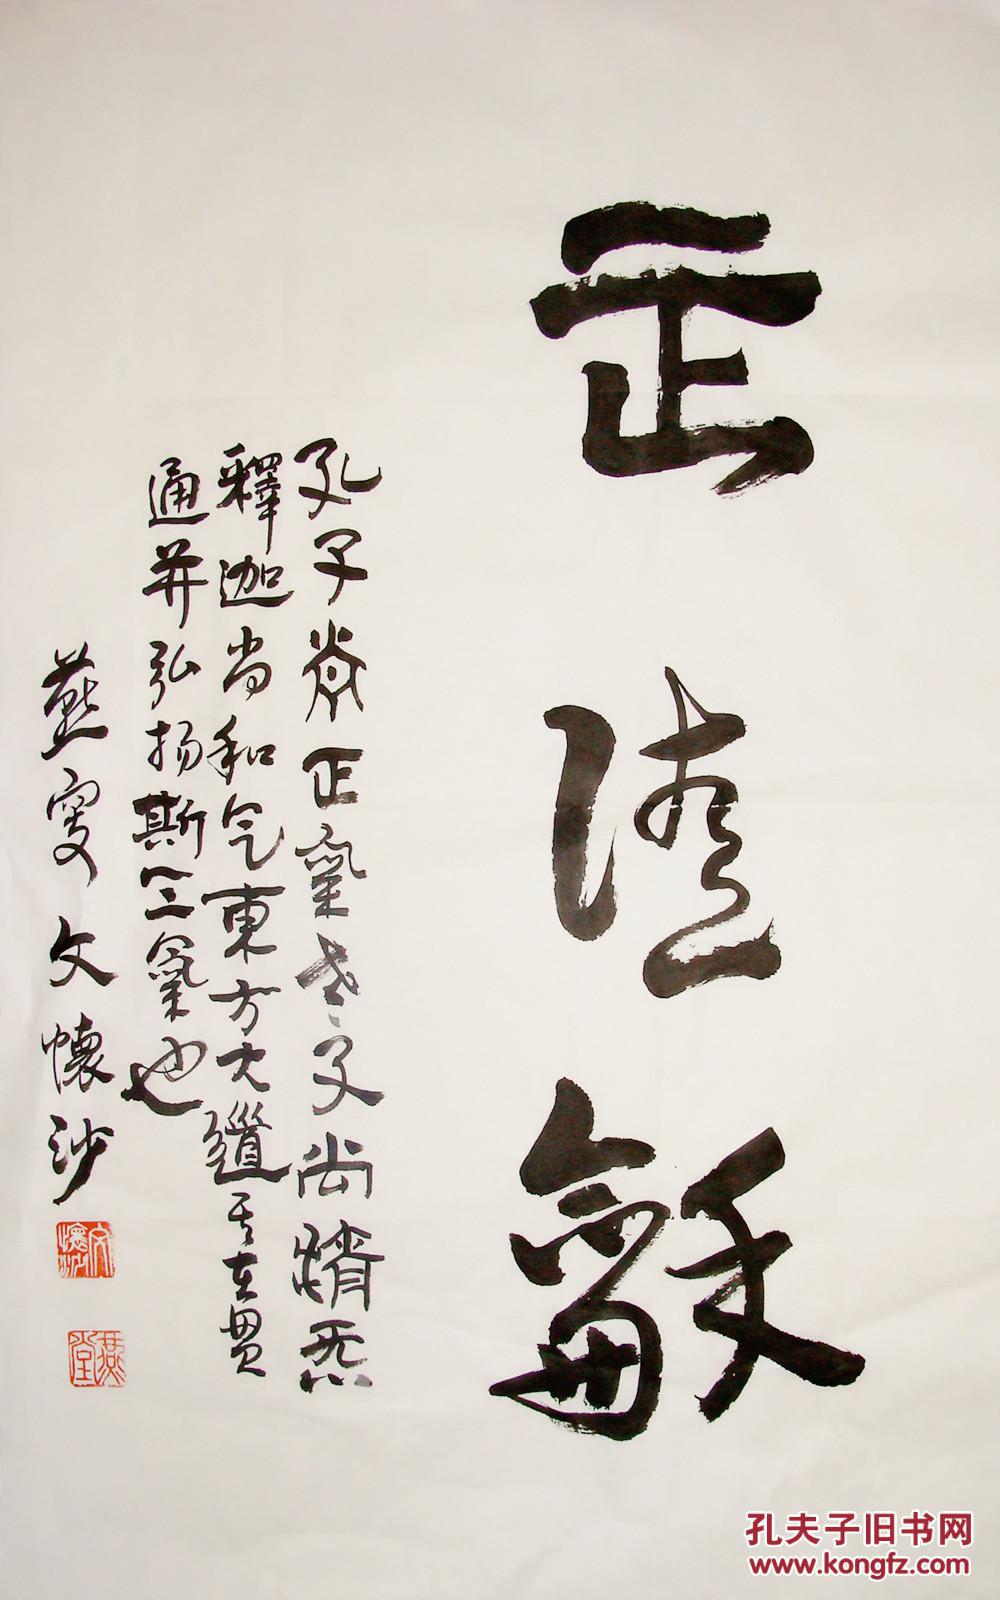 正清龢
孔子尚正氣老子尚清炁
釋迦尚和气東方大道其在貫
通并弘扬斯三氣也
燕叟文懷沙
文懷沙
燕堂
孔夫子旧书网
www.kongfz.com